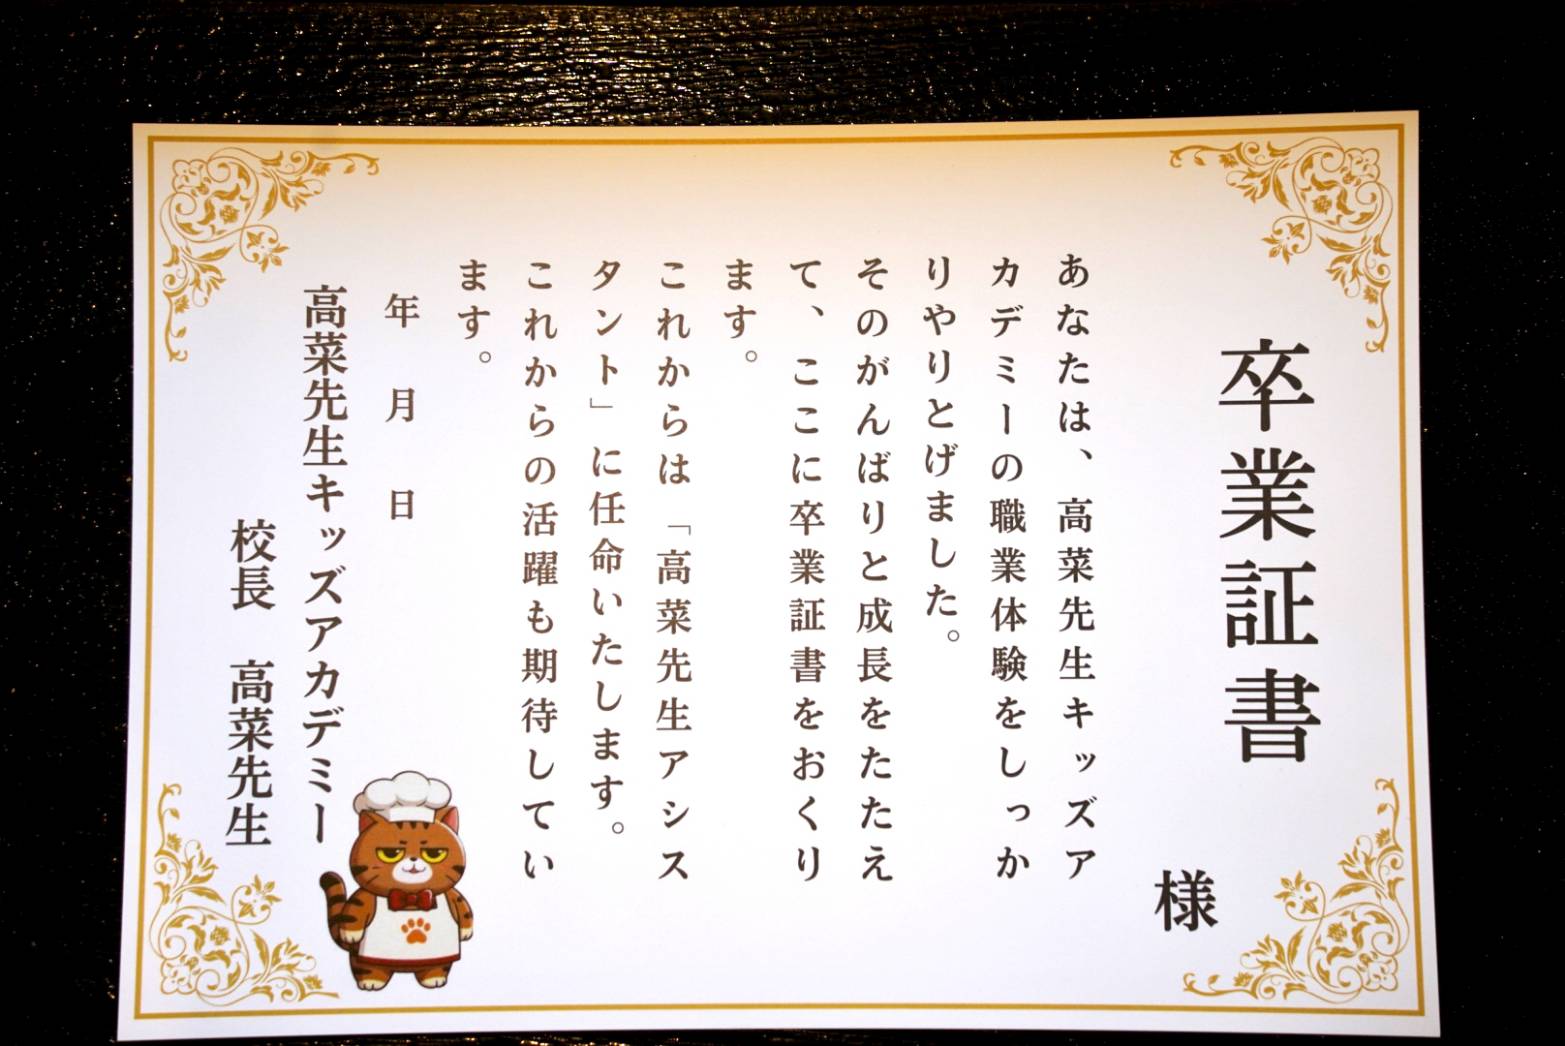 卒業証書
様
あなたは、高菜先生キッズア
カデミーの職業体験をしっか
りやりとげました。
そのがんばりと成長をたたえ
て、ここに卒業証書をおくり
ます。
これからは「高菜先生アシス
タント」に任命いたします。
これからの活躍も期待してい
ます。
年 月 日
高菜先生キッズアカデミー
校長 高菜先生